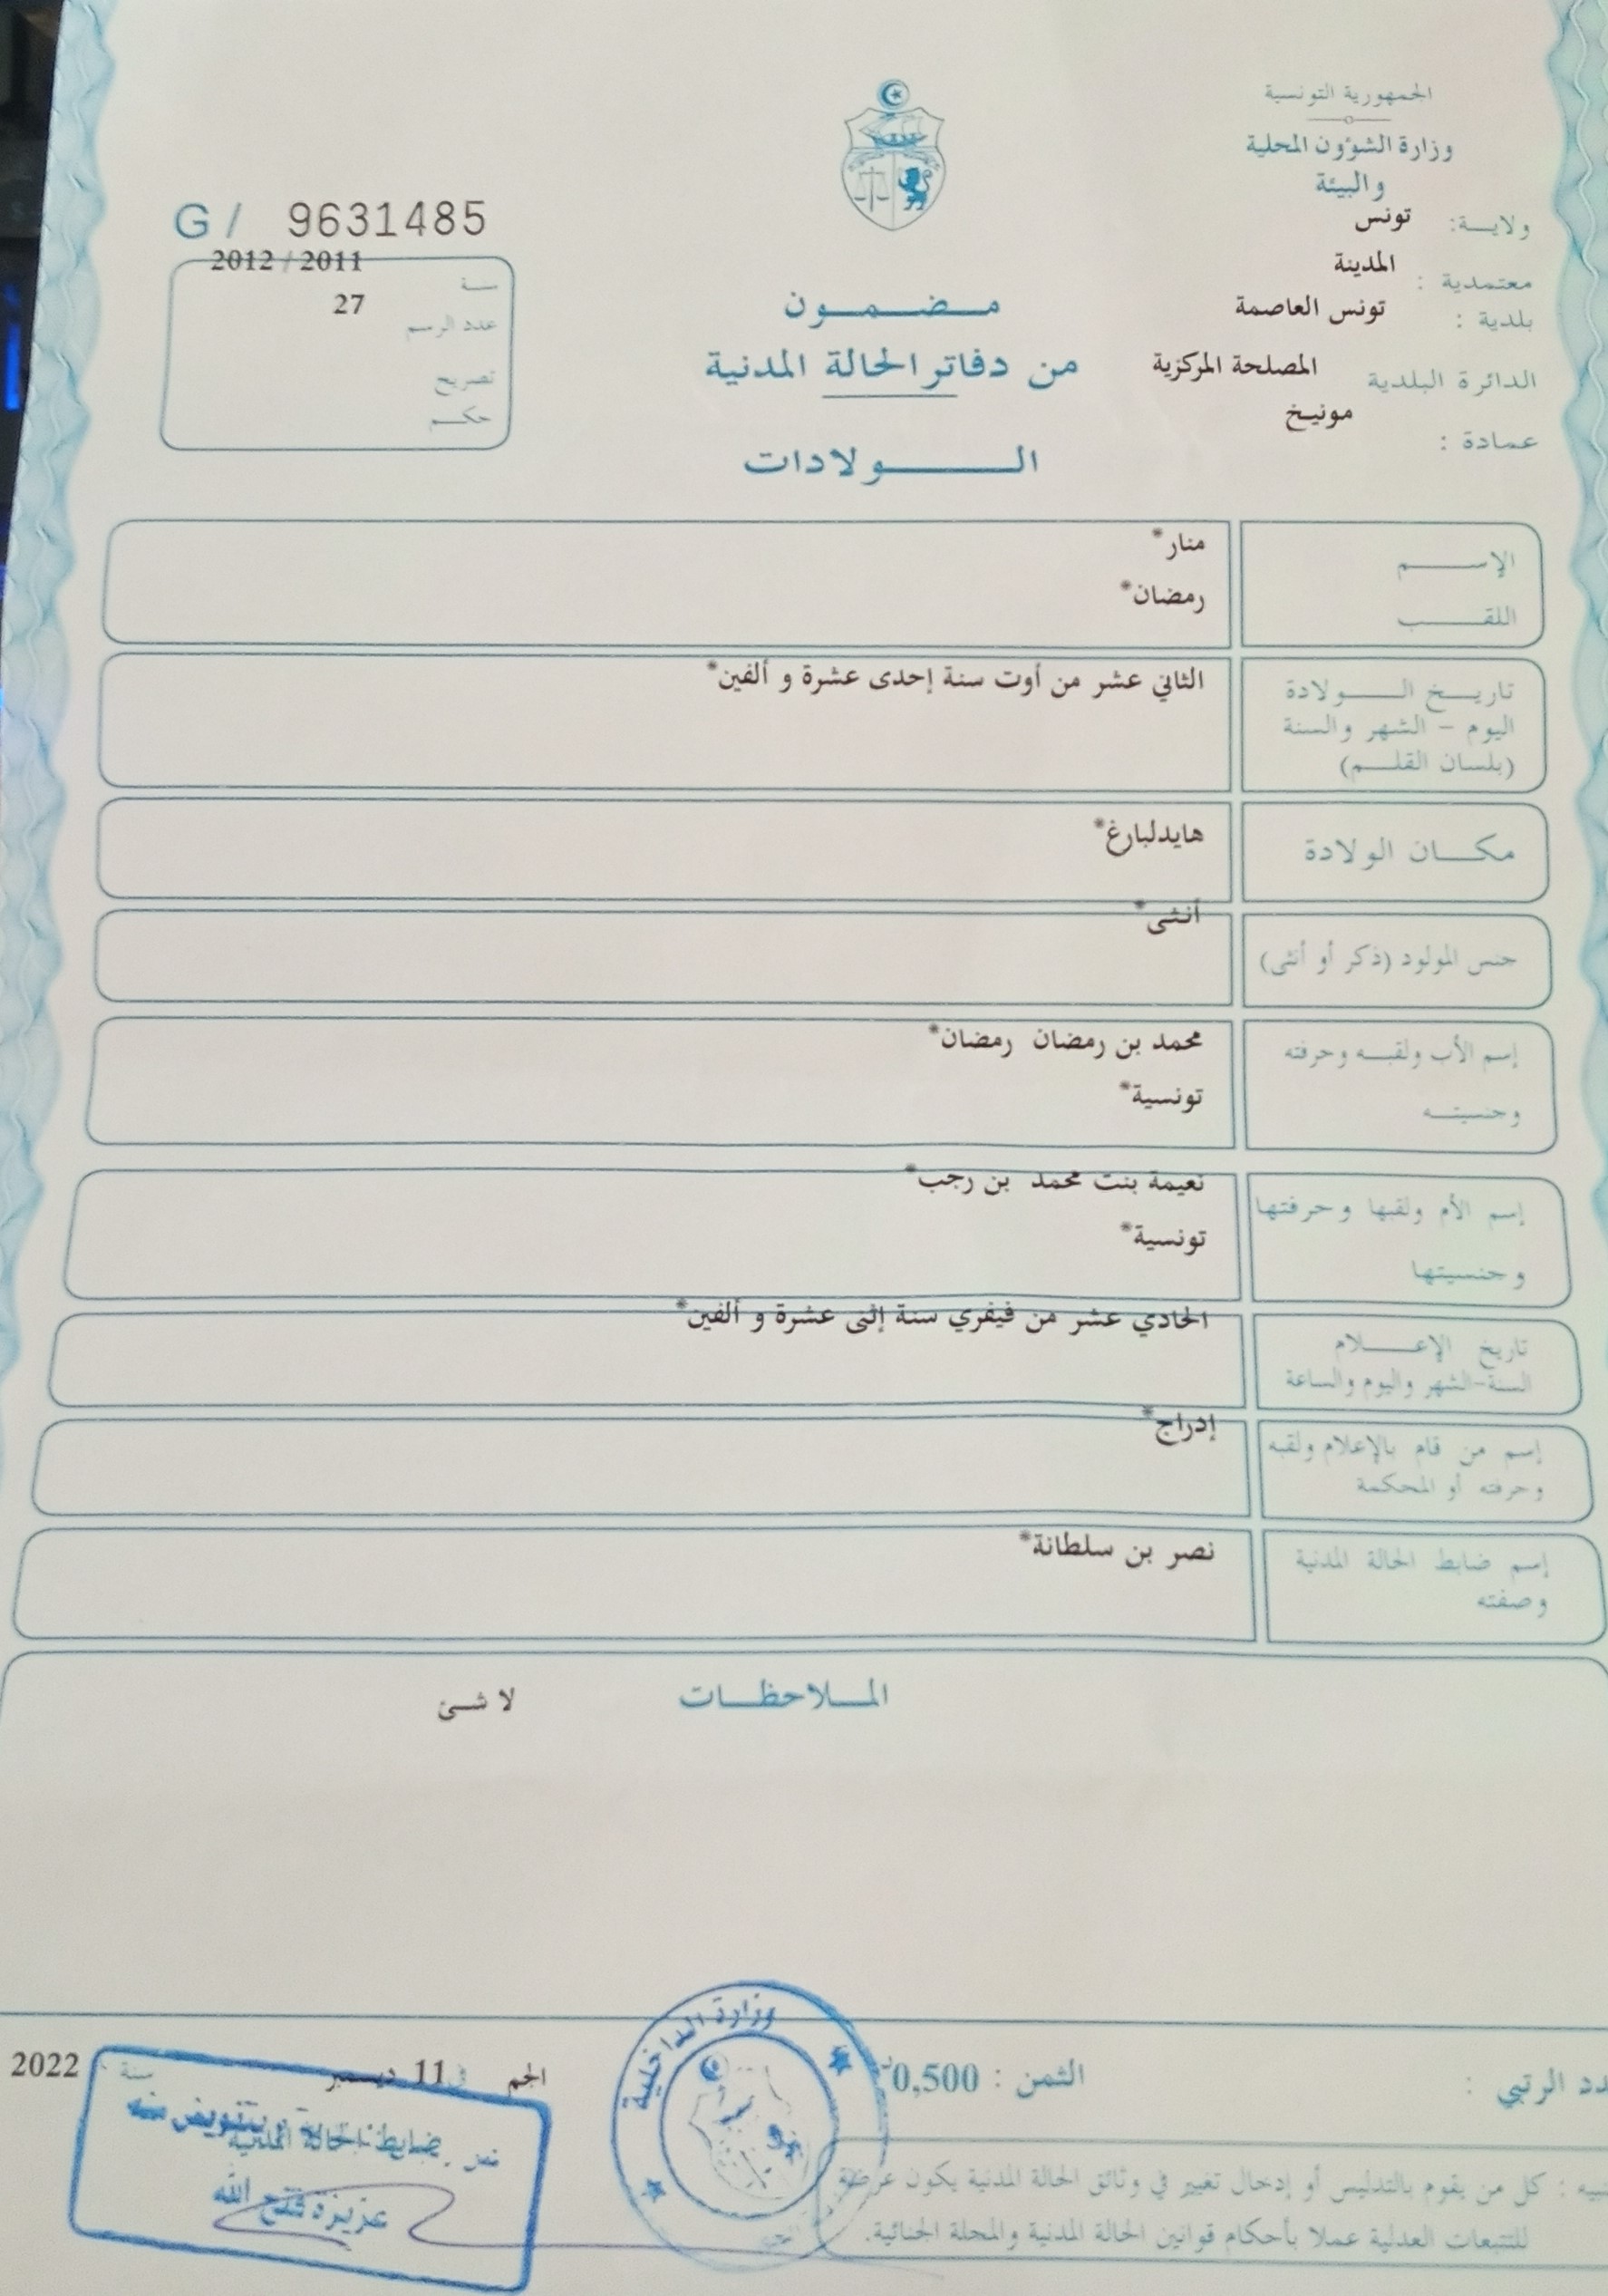 الجمهورية التونسية
وزارة الشؤون المحلية
والبيئة
ولايـــة: تونس
معتمدية : المدينة
بلدية : تونس العاصمة
الدائرة البلدية المصلحة المركزية
عمادة : مونيخ
مضمون
من دفاتر الحالة المدنية
الولادات
G / 9631485
سنة 2011 / 2012
عدد الرسم 27
تصريح
حكم
الإسم منار*
اللقب رمضان*
تاريخ الولادة الثاني عشر من أوت سنة إحدى عشرة و ألفين*
اليوم - الشهر والسنة
(بلسان القلم)
مكان الولادة هايدلبارغ*
جنس المولود (ذكر أو أنثى) أنثى*
إسم الأب ولقبه وحرفته محمد بن رمضان رمضان*
وجنسيته تونسية*
إسم الأم ولقبها وحرفتها نعيمة بنت محمد بن رجب*
وجنسيتها تونسية*
تاريخ الإعلام الحادي عشر من فيفري سنة إثنى عشرة و ألفين*
السنة-الشهر واليوم والساعة
إسم من قام بالإعلام ولقبه إدراج*
وحرفته أو المحكمة
إسم ضابط الحالة المدنية نصر بن سلطانة*
وصفته
الملاحظات لا شئ
دد الرتبي :
الثمن : 0,500
الجم في 11 ديسمبر سنة 2022
وزارة الداخلية
ضابط الحالة المدنية
بتفويض منه
عزيزة فتح الله
نبيه : كل من يقوم بالتدليس أو إدخال تغيير في وثائق الحالة المدنية يكون عرضة
للتتبعات العدلية عملا بأحكام قوانين الحالة المدنية والمجلة الجنائية.